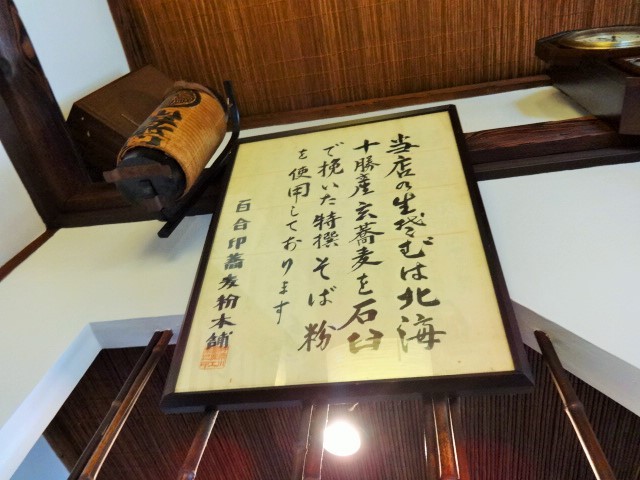 当店の生そばは北海
十勝産玄蕎麦を石臼
で挽いた特撰そば粉
を使用しております
百合印蕎麦粉本舗